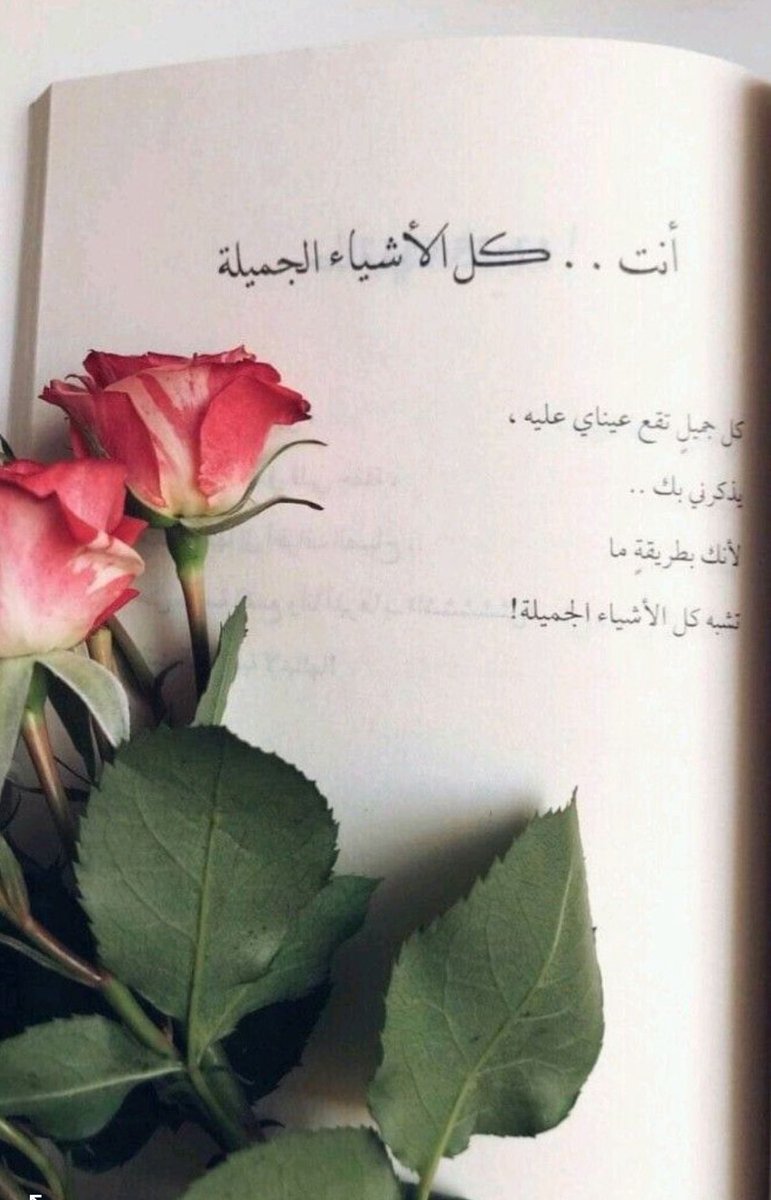 أنت . . كل الأشياء الجميلة
كل جميلٍ تقع عيناي عليه ،
يذكرني بك ..
لأنك بطريقةٍ ما
تشبه كل الأشياء الجميلة!